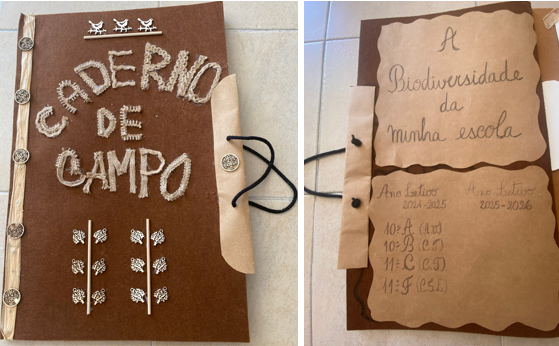 CADERNO
DE
CAMPO
A
Biodiversidade
da
minha escola
Ano Letivo
2024-2025
Ano Letivo
2025-2026
10º A
10º B
11º C
11º F